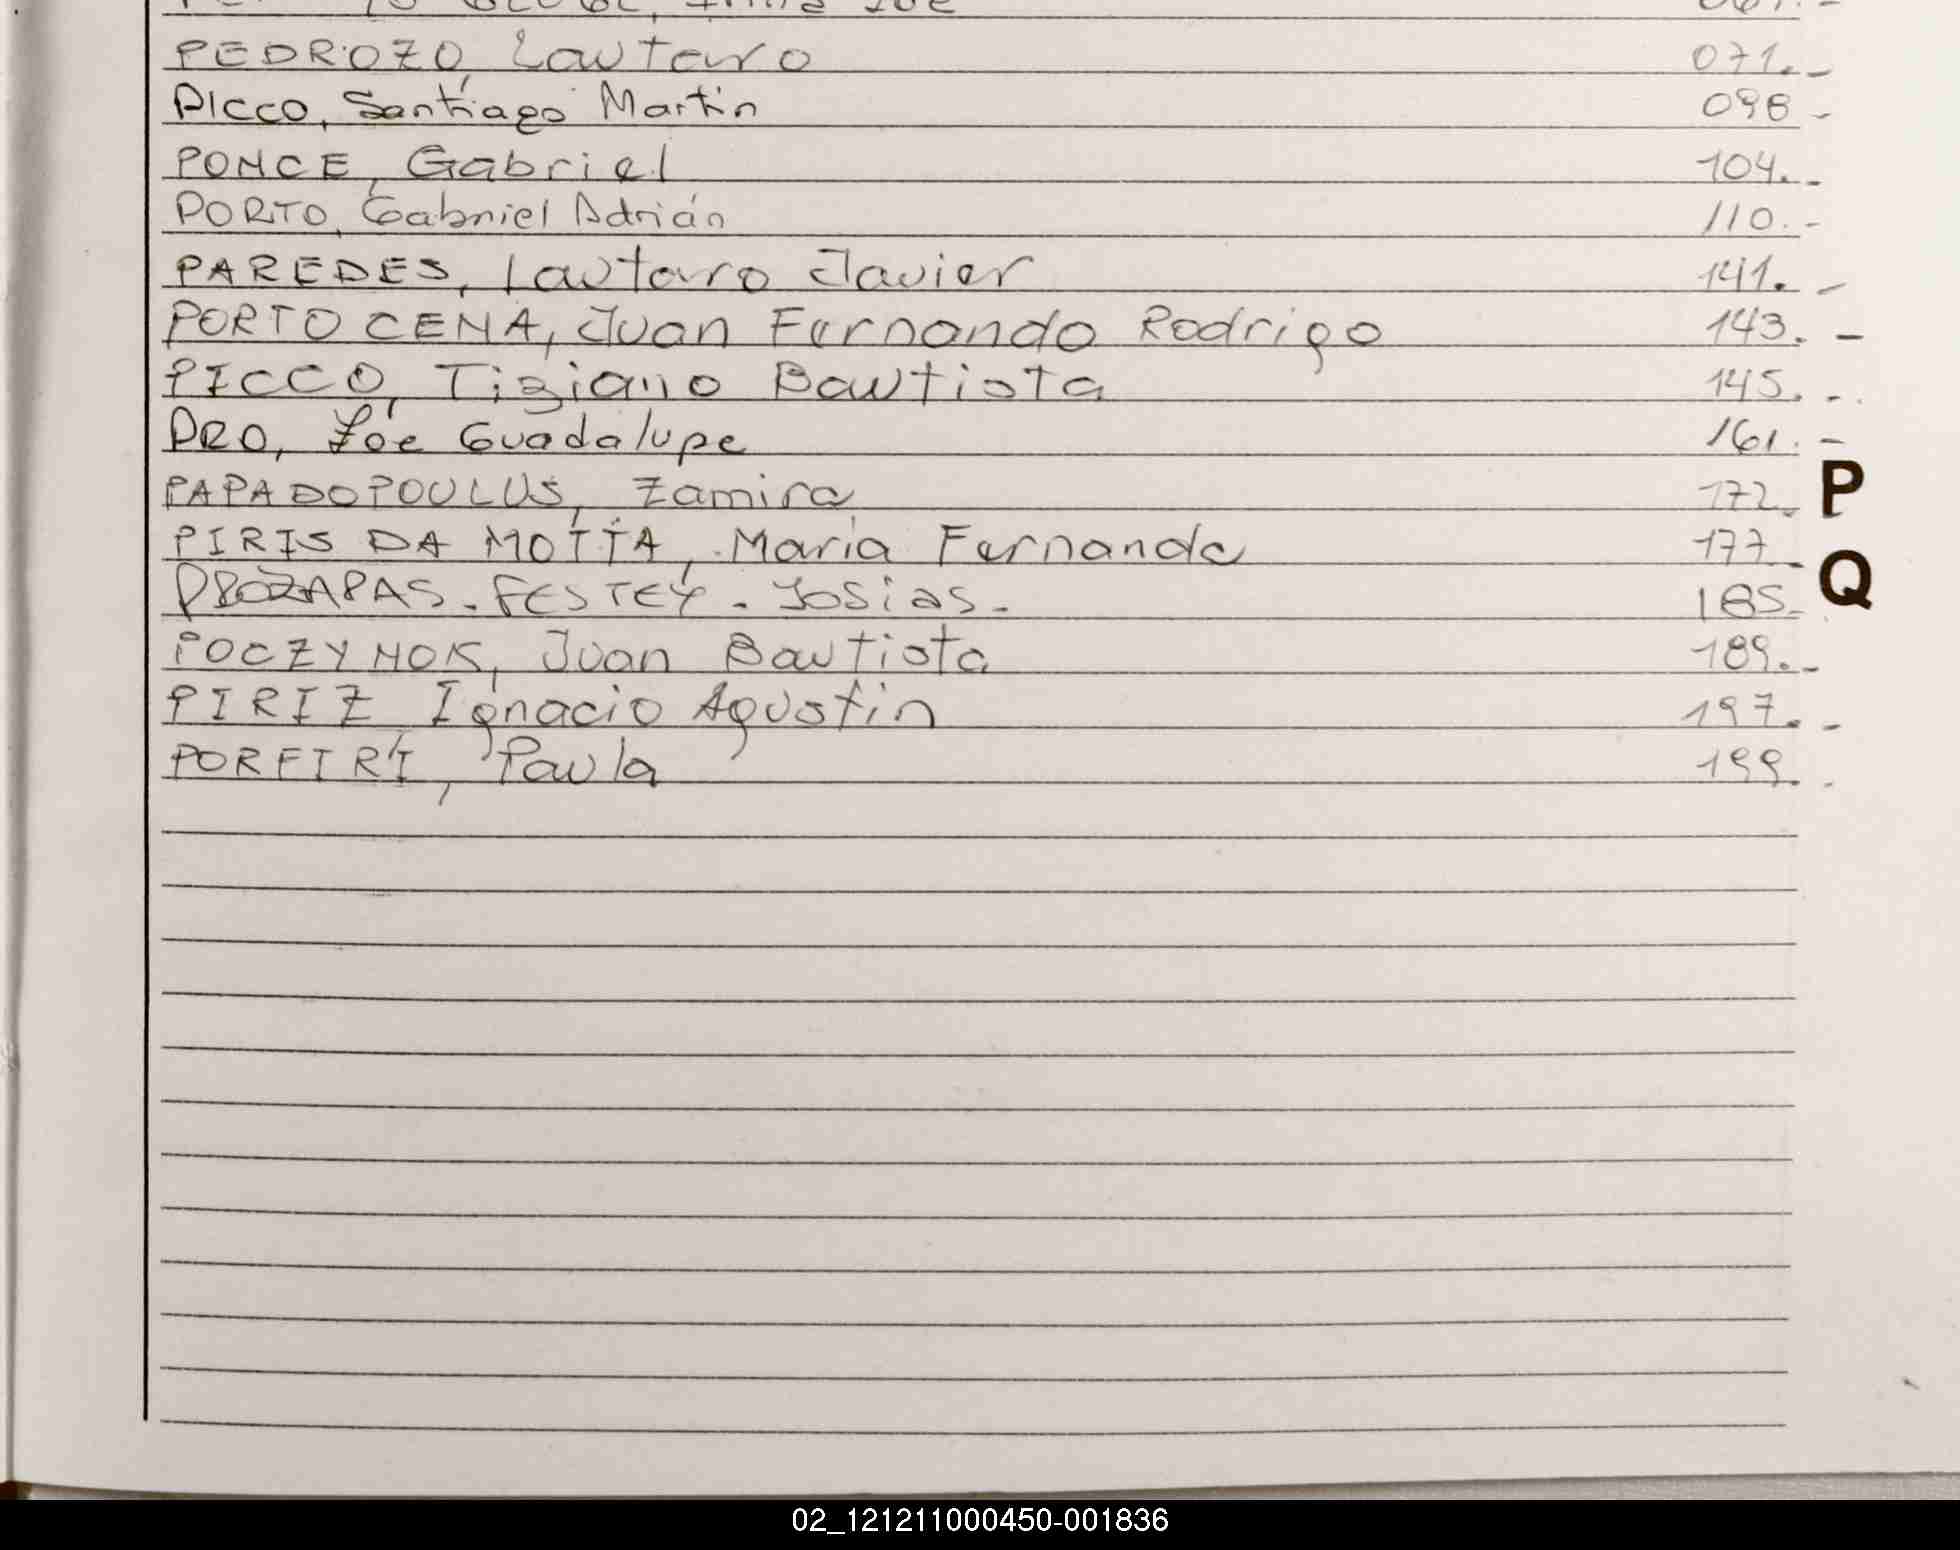 PEDROZO, Lautaro 071.-
PICCO, Santiago Martin 098-
PONCE, Gabriel 104.-
PORTO, Gabriel Adrián 110.-
PAREDES, Lautaro Javier 141.-
PORTOCENA, Juan Fernando Rodrigo 143.-
PICCO, Tiziano Bautista 145.-
PRO, Zóe Guadalupe 161.-
PAPADOPOULUS, Zamira 172- P
PIRIS DA MOTTA, Maria Fernanda 177-
FESTEY. Josias- 185- Q
POCZYNOK, Juan Bautista 189.-
PIRIZ Ignacio Agustin 197.-
PORFIRI, Paula 199.-
02_121211000450-001836